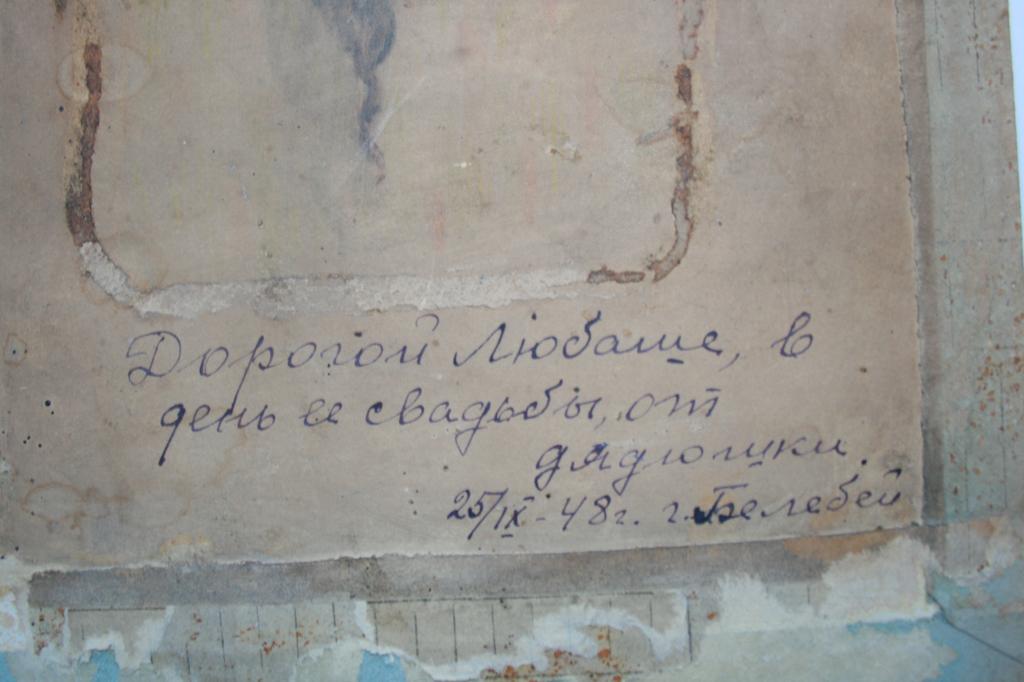 Дорогой Любаше, в
день ее свадьбы, от
дядюшки.
25/IX-48г. г. Белебей